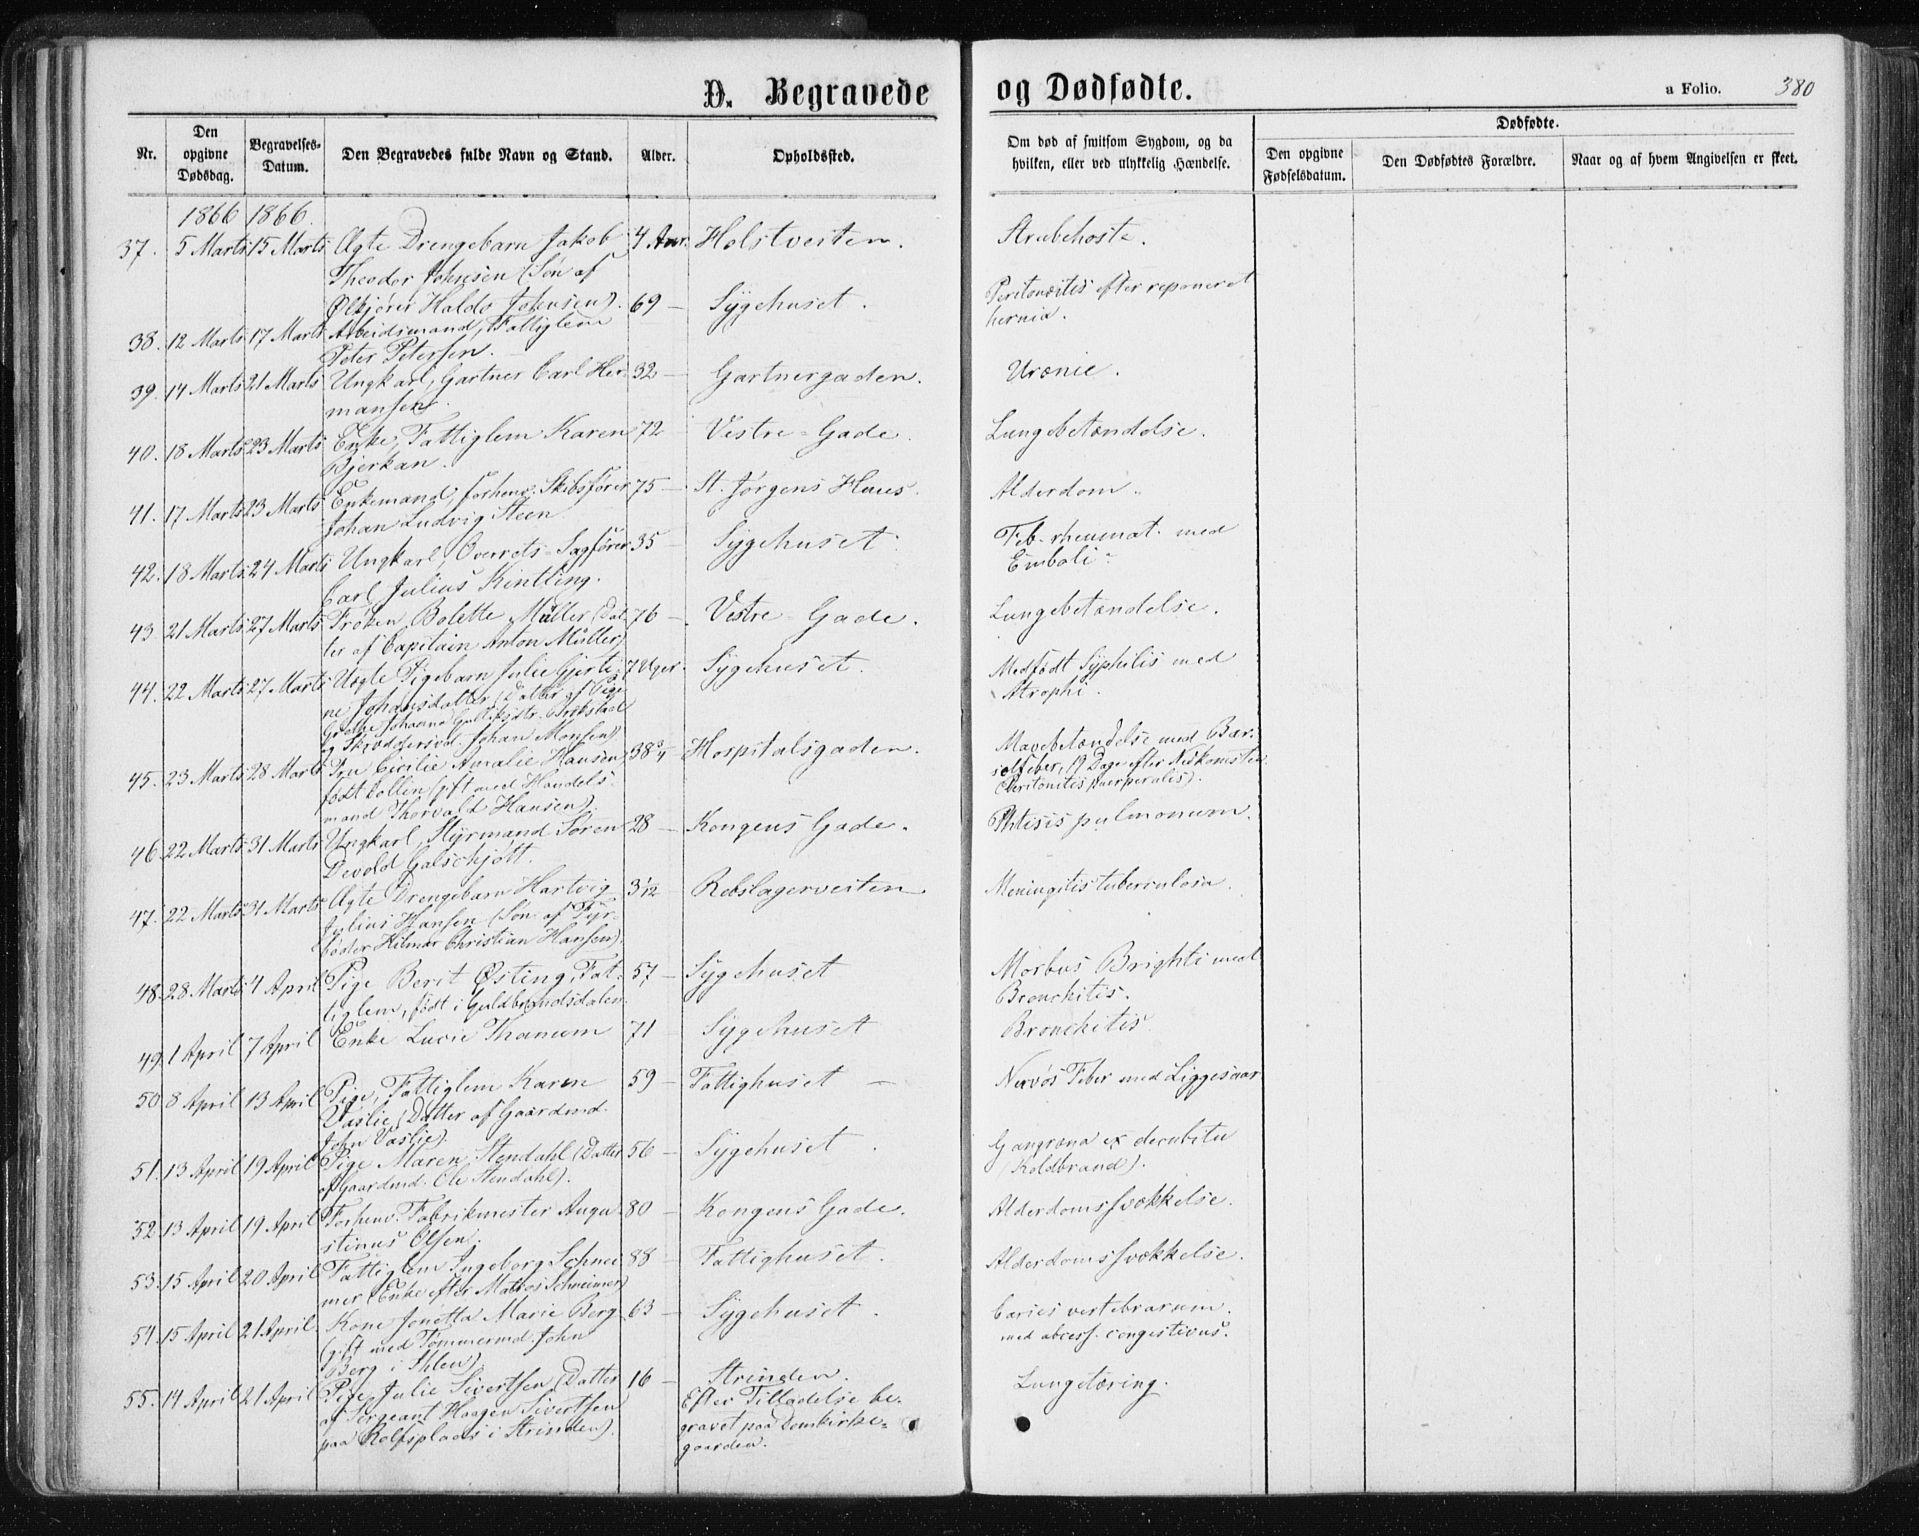 D. Begravede og Dødfødte.
a Folio. 380
Nr.
Den opgivne Dødsdag.
Begravelses-Datum.
Den Begravedes fulde Navn og Stand.
Alder.
Opholdssted.
Om død af smitsom Sygdom, og da hvilken, eller ved ulykkelig Hændelse.
Dødfødte.
Den opgivne Fødselsdatum.
Den Dødfødtes Forældre.
Naar og af hvem Angivelsen er skeet.
1866 1866.
37. 5 Marts 15 Marts Ægte Drengebarn Jakob 4 Aar. Holstvesten. Strubehoste.
Theodor Johnsen (Søn af
Ølkjører Halds Johnsen).
38. 12 Marts 17 Marts Arbeidsmand, Fattiglem 69 — Sygehuset. Peritonæitis efter reponeret
Peter Petersen. hernia.
39. 14 Marts 21 Marts Ungkarl, Gartner Carl Her- 32 — Gartnergaden. Urænie.
mansen.
40. 18 Marts 23 Marts Enke, Fattiglem Karen 72 Vestre-Gade. Lungebetændelse.
Bjerkan.
41. 17 Marts 23 Marts Enkemand, forhenv. Skibsfører 75 — St. Jørgens Huus. Alderdom.
Johan Ludvig Steen
42. 18 Marts 24 Marts Ungkarl, Overrets-Sagfører 35 — Sygehuset. Feb. rheumat. med
Carl Julius Kintling. Emboli.
43. 21 Marts 27 Marts Frøken Bolette Müller (Dat- 76 — Vestre-Gade. Lungebetændelse.
ter af Capitain Anton Müller)
44. 22 Marts 27 Marts Uægte Pigebarn Julie Gjerti- 7 Uger. Sygehuset. Medfødt Syphilis med
ne Johansdatter (Datter af Pige Atrophi.
Grethe Johanna Brekstad
og Skræddersvd. Johan Monsen)
45. 23 Marts 28 Marts Fru Cicilie Amalie Hansen, 38 3/4 — Hospitalsgaden. Mavebetændelse med Bar-
født Collin (gift med Handels- selfeber, 19 Dage efter Nedkomsten
mand Thorvald Hansen). (Peritonitis puerperalis).
46. 22 Marts 31 Marts Ungkarl, Styrmand Søren 28 — Kongens Gade. Phtisis pulmonum.
Devold Galschjøtt.
47. 22 Marts 31 Marts Ægte Drengebarn Hartvig 3 1/12 — Rebslagerveiten. Meningitis tuberculosa.
Julius Hansen (Søn af Fyr-
bøder Hilmar Christian Hansen).
48. 28 Marts 4 April Pige Berit Østing, Fat- 57 — Sygehuset Morbus Brighti med
tiglem, født i Guldbrandsdalen. Bronchitis.
49. 1 April 7 April Enke Lucie Thanum 71 — Sygehuset Bronchitis.
50. 8 April 13 April Pige, Fattiglem Karen 59 — Fattighuset — Nervøs Feber med Liggesaar
Vaslie (Datter af Gaardmd.
John Vaslie).
51. 13 April 19 April Pige Maren Stendahl (Datter 56 — Sygehuset. Gangræna ex decubitu
af Gaardmd. Ole Stendahl). (Koldbrand).
52. 13 April 19 April Forhenv. Fabrikmester Augu- 80 — Kongens Gade. Alderdomssvækkelse.
stinus Olsen.
53. 15 April 20 April Fattiglem Ingeborg Schnei- 88 — Fattighuset. Alderdomssvækkelse.
mer (Enke efter Matros Schneimer)
54. 15 April 21 April. Kone Jonetta Marie Berg 63 — Sygehuset. Caries vertebrarum.
(gift med Tømmermd. John med abcess. congestivus.
Berg i Ihlen).
55. 14 April 21 April Pige Julie Sivertsen (Datter 16 — Strinden. Lungetæring.
af Sergeant Haagen Sivertsen Efter Tilladelse be-
paa Rolfsplads i Strinden). gravet paa Domkirke-
gaarden.